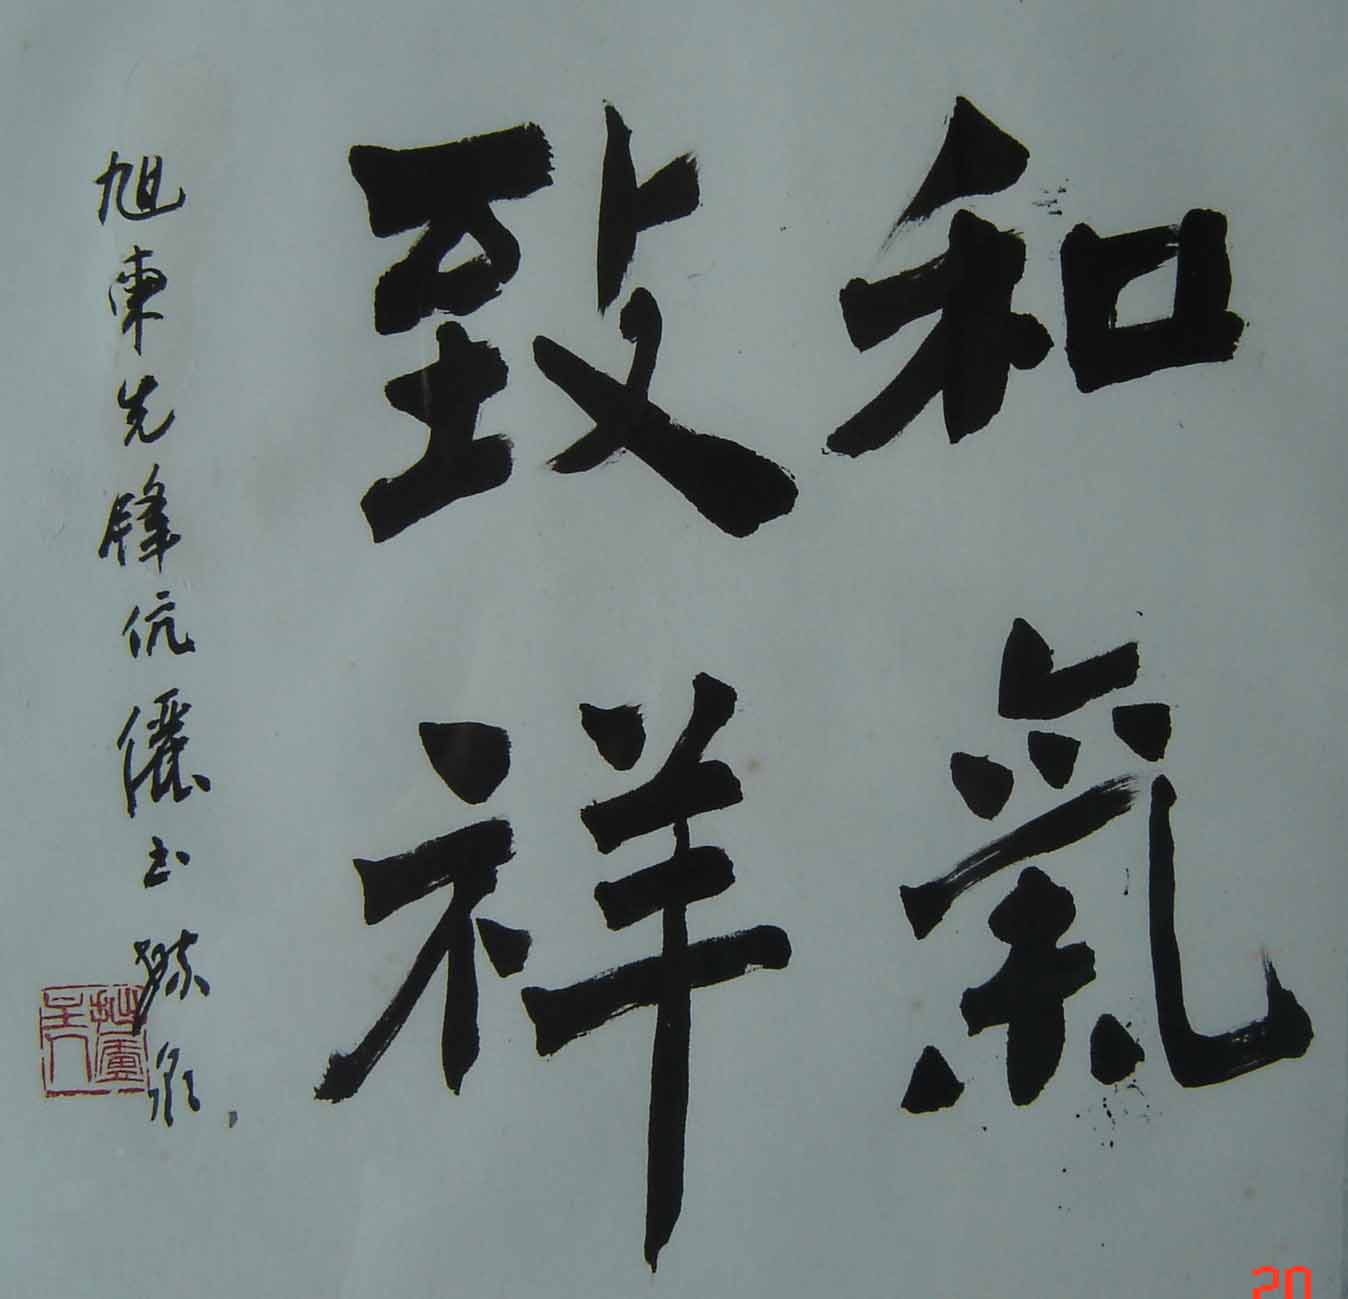 和氣
致祥
旭東先鋒伉儷玉
20